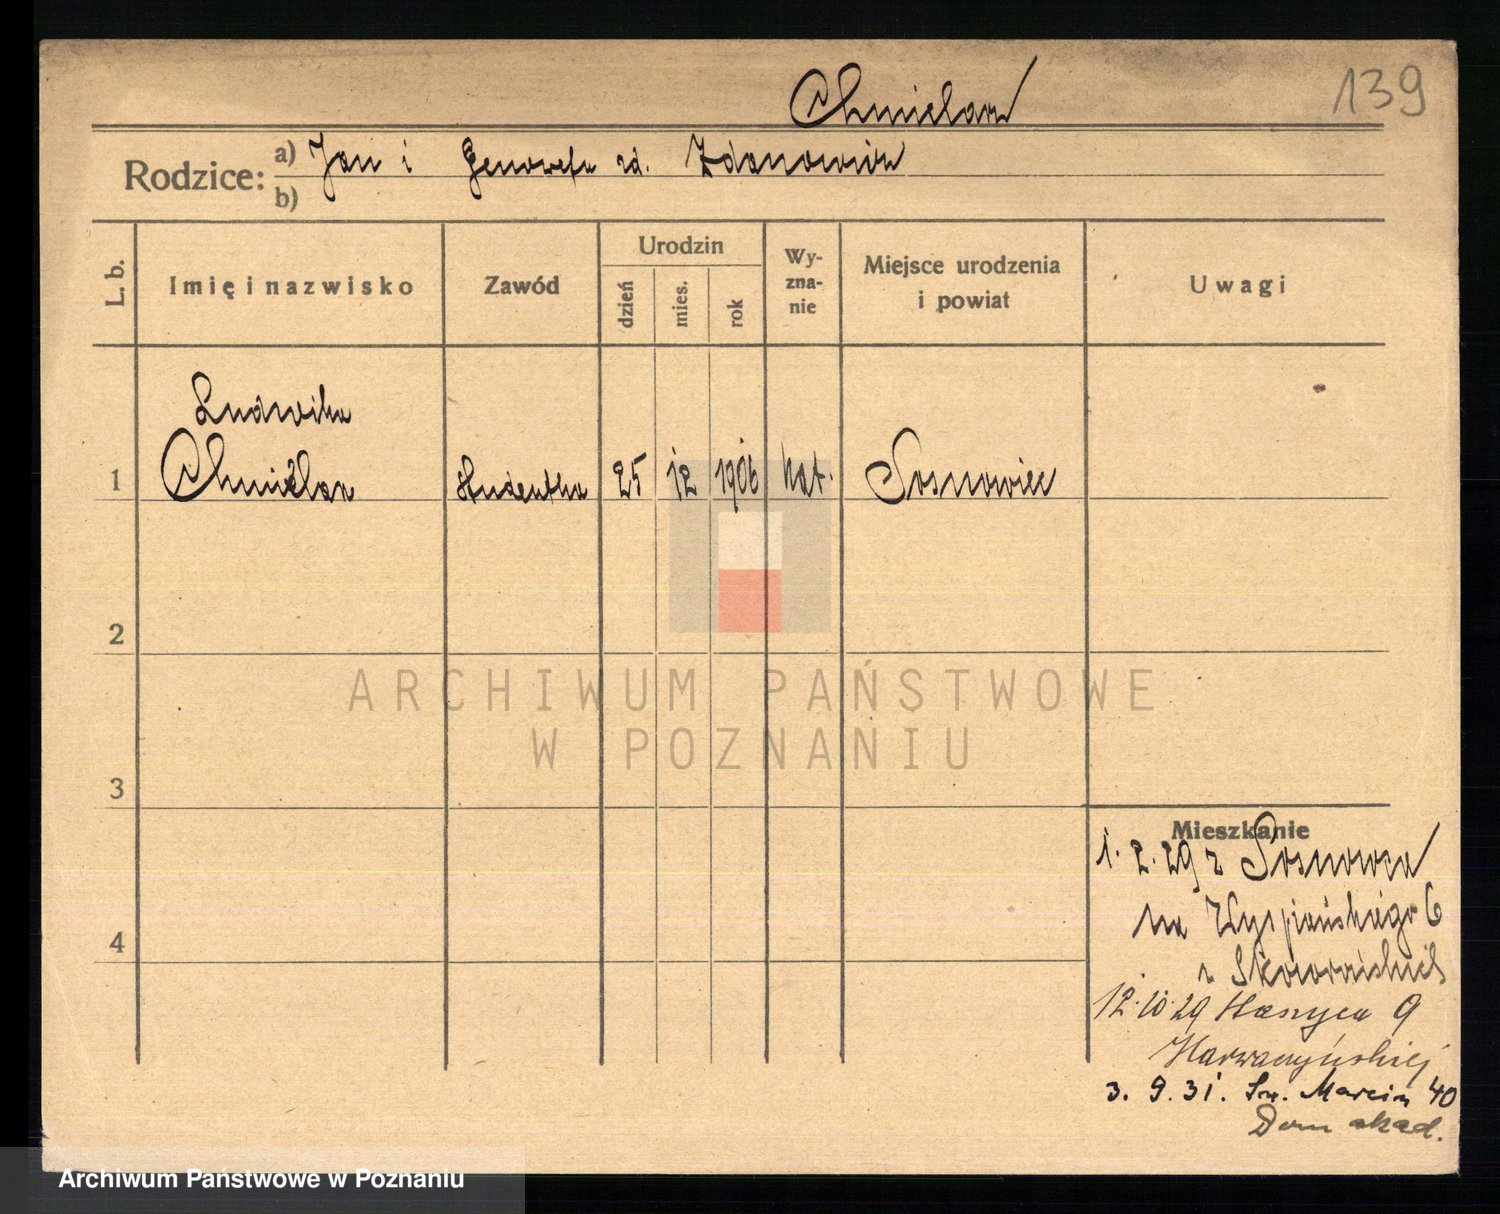 Chmielarz
139
Rodzice: a) Jan i Genowefa zd. Zdanowicz
b)
L. b.
Imię i nazwisko
Zawód
Urodzin
dzień
mies.
rok
Wy-
zna-
nie
Miejsce urodzenia
i powiat
Uwagi
Ludwika
1 Chmielarz studentka 25 12 1906 kat. Sosnowiec
2
3
4
ARCHIWUM PAŃSTWOWE
W POZNANIU
Mieszkanie
1. 2. 29 z Sosnowca
na Wyspiańskiego 6
z
12.10.29 9
3. 9. 31. Św. Marcin 40
Dom akad.
Archiwum Państwowe w Poznaniu